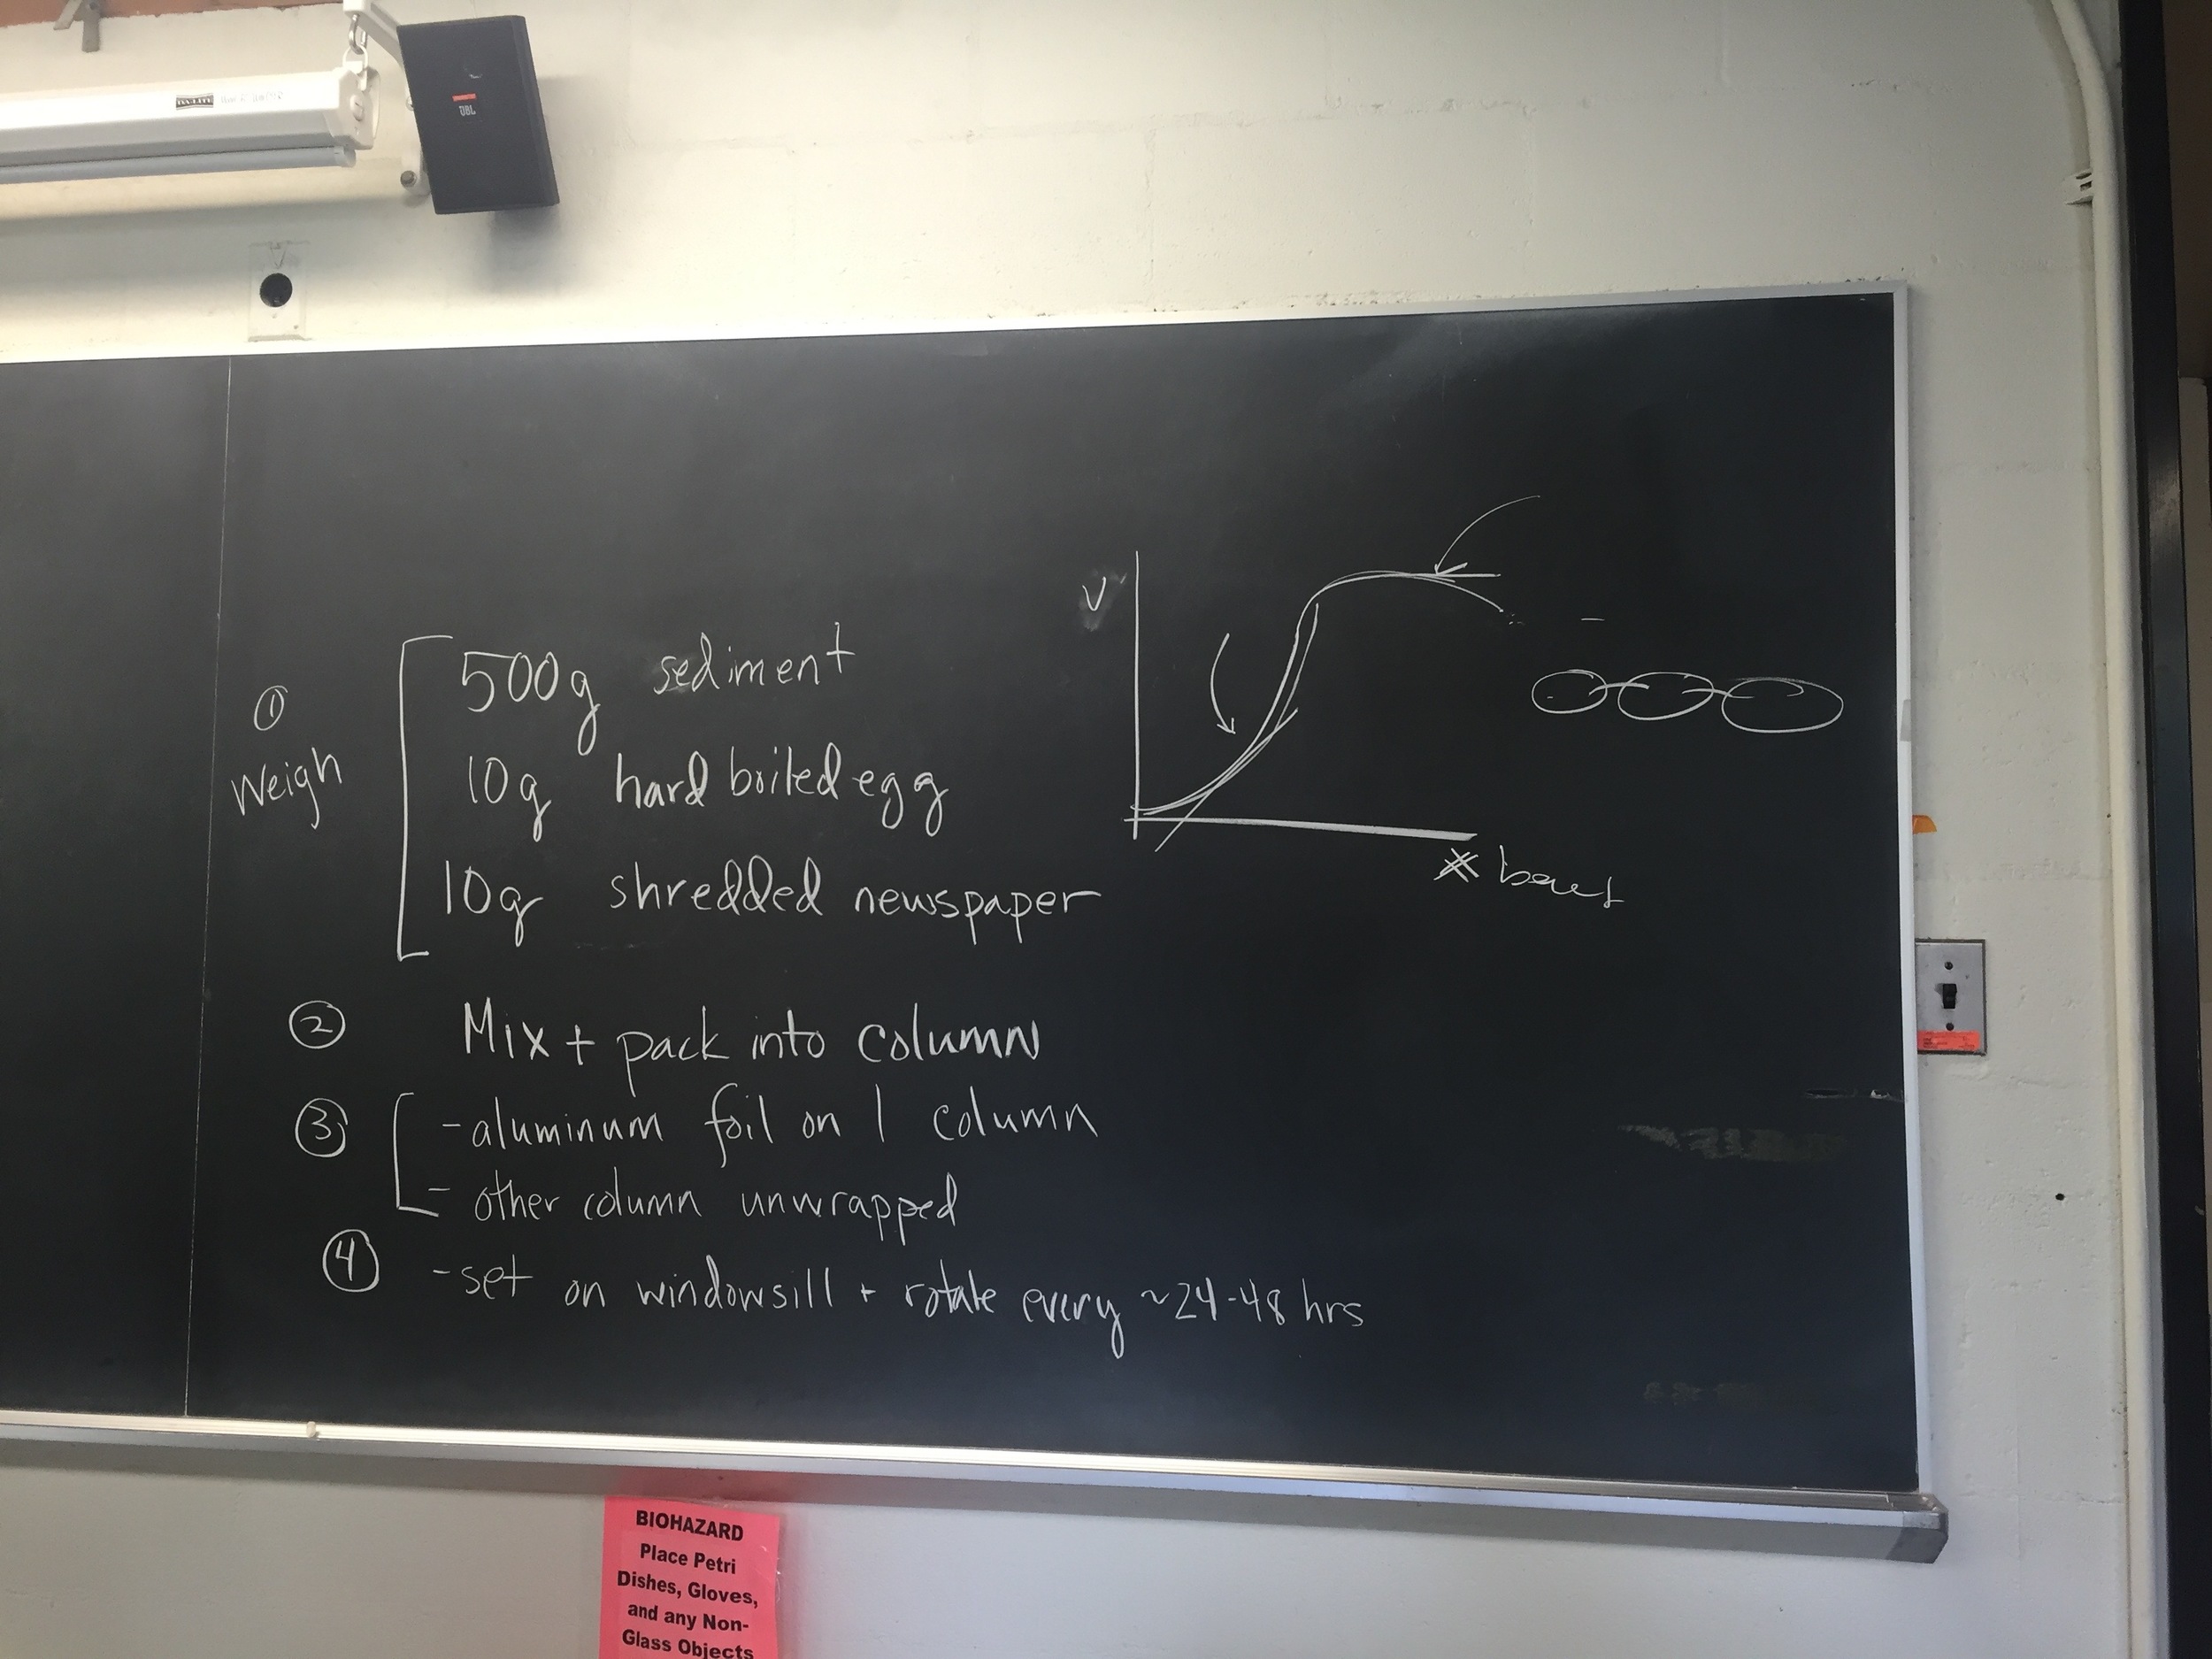 JBL
① 500g sediment
Weigh 10g hard boiled egg
10g shredded newspaper
② Mix + pack into column
③ - aluminum foil on 1 column
- other column unwrapped
④ - set on windowsill + rotate every ~24-48 hrs
V
#
BIOHAZARD
Place Petri
Dishes, Gloves,
and any Non-
Glass Objects